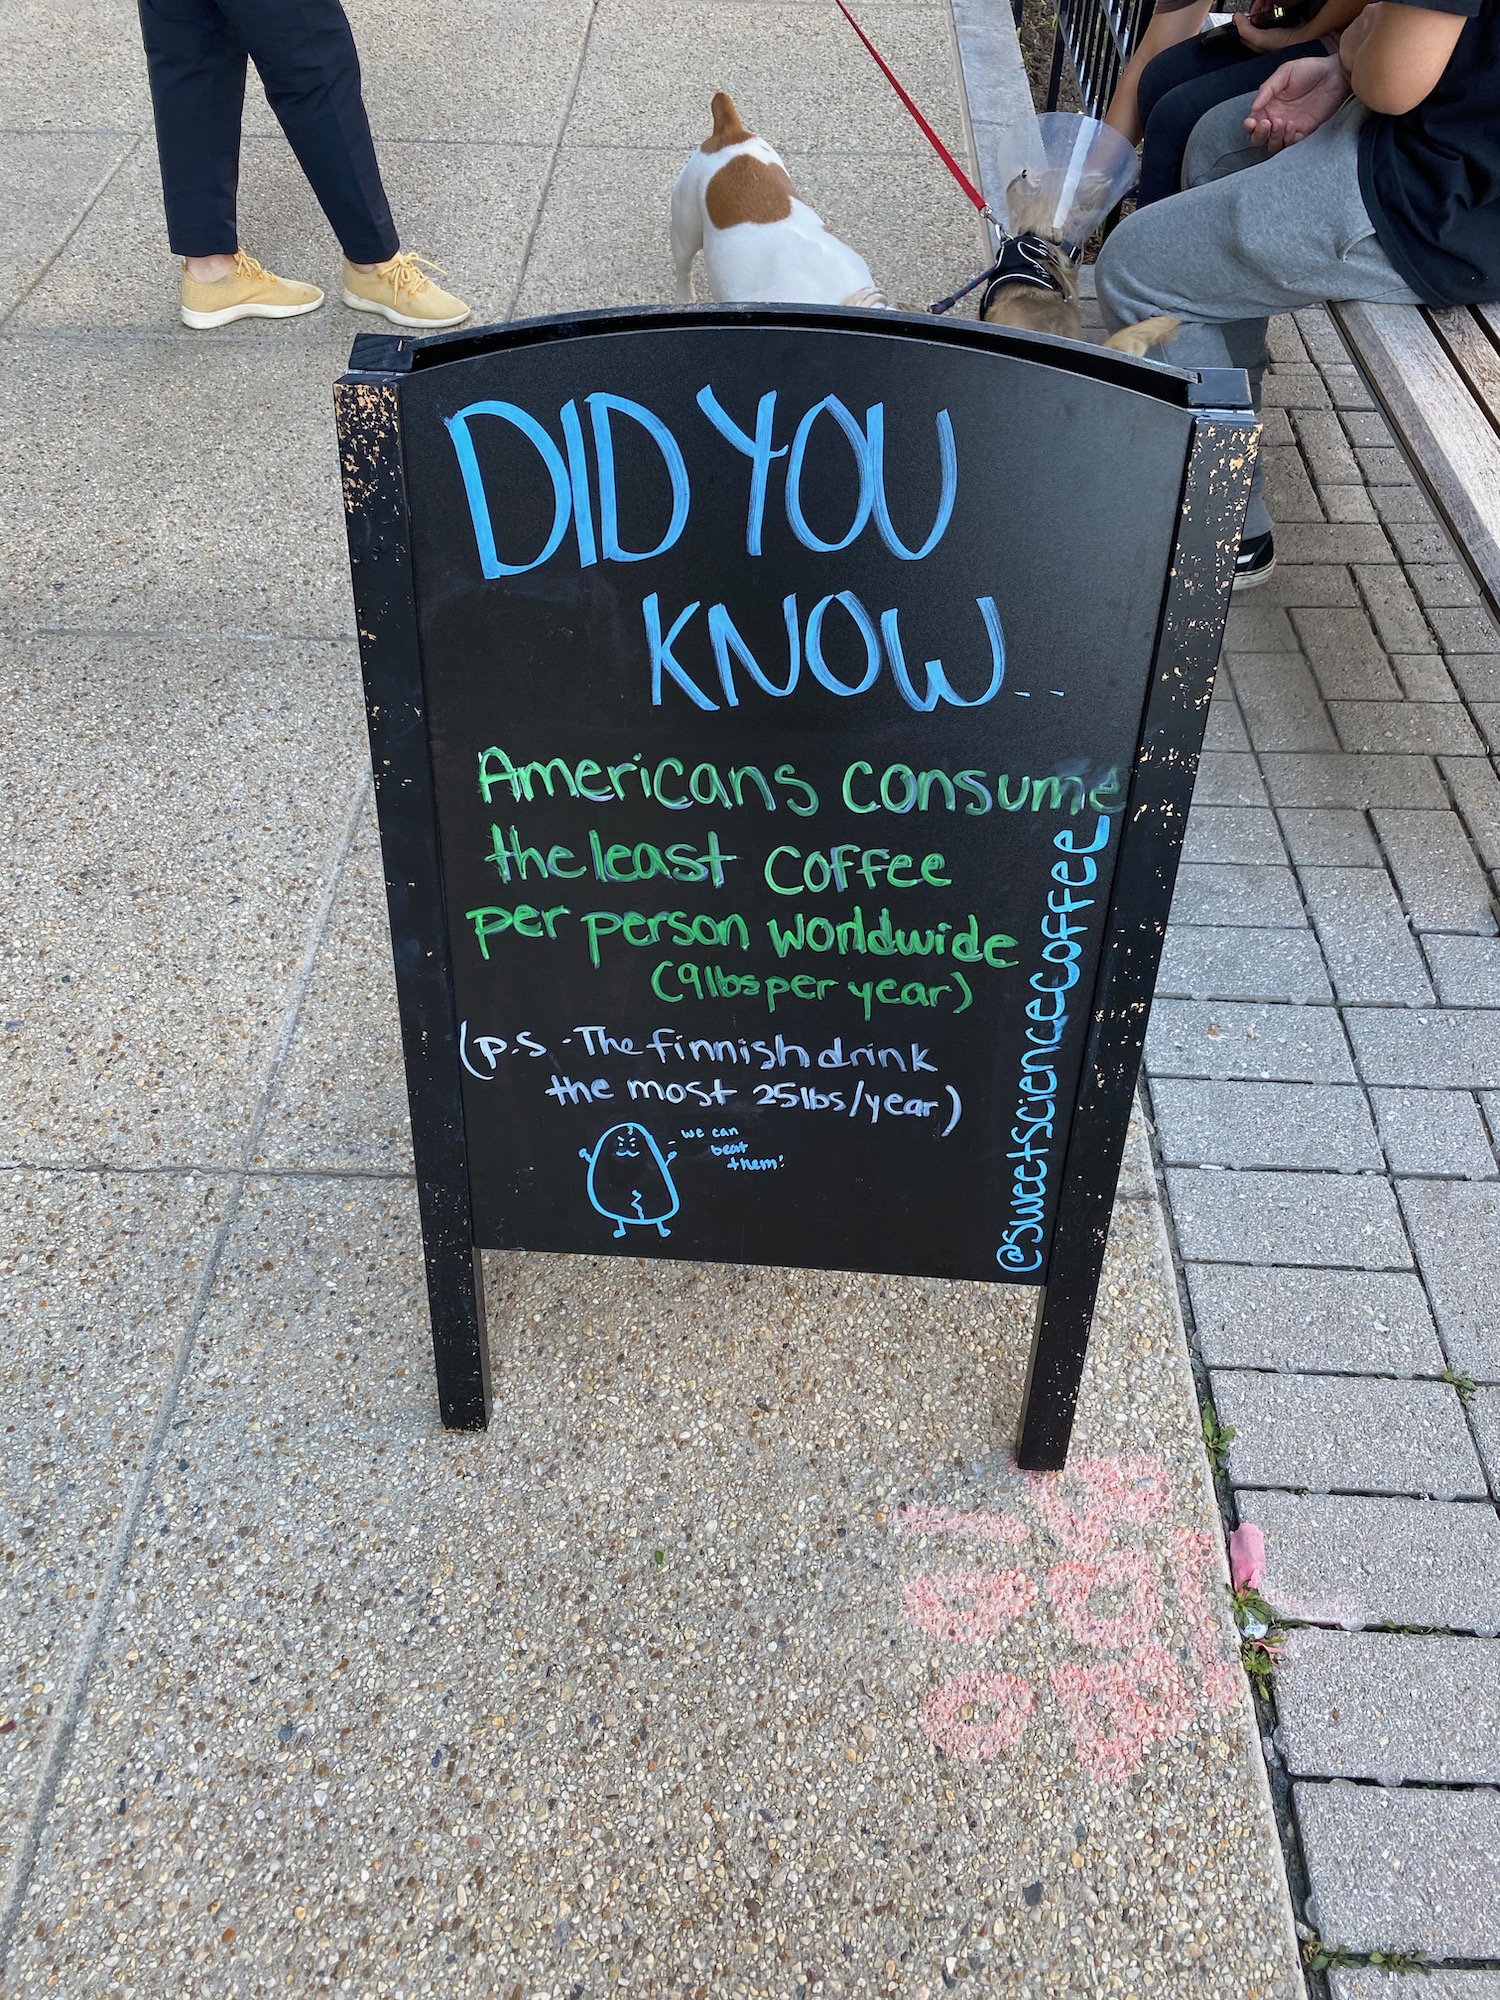 DID YOU
KNOW..
Americans consume
the least coffee
per person worldwide
(9lbs per year)
(p.s. The finnish drink
the most 25lbs/year)
we can
beat
them!
@sweetsciencecoffee